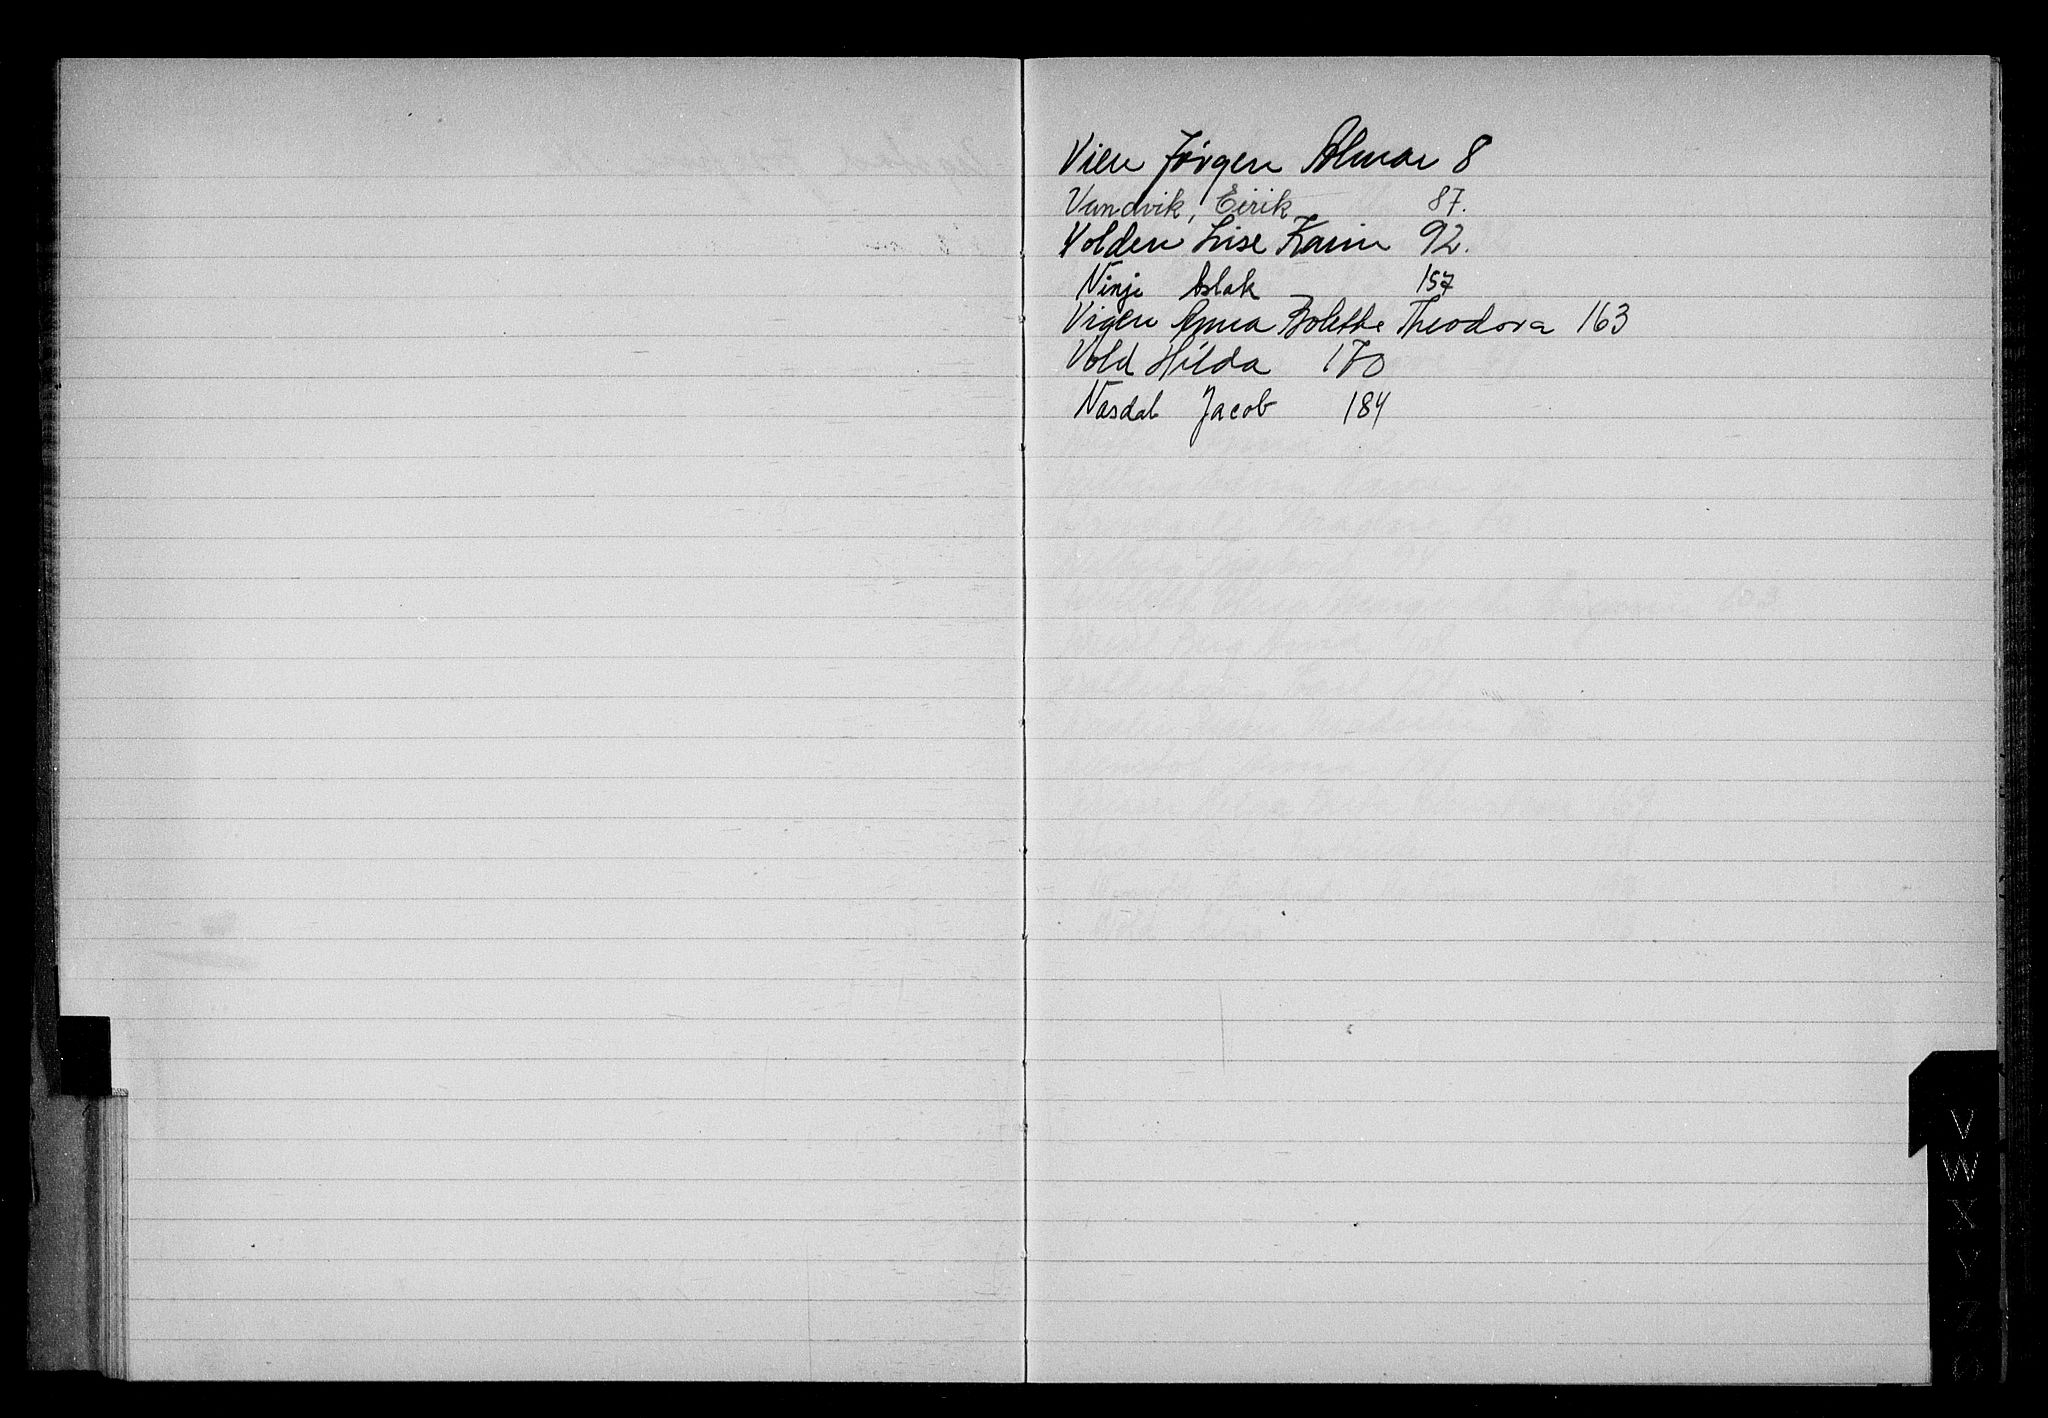 Vien Jörgen Almar 8
Vandvik, Eirik 87.
Volden Lise Karin 92.
Vinje Aslak 157
Vigen Anna Bolette Theodora 163
Vold Hilda 170
Vasdal Jacob 184
V
W
X
Y
Z
Ø